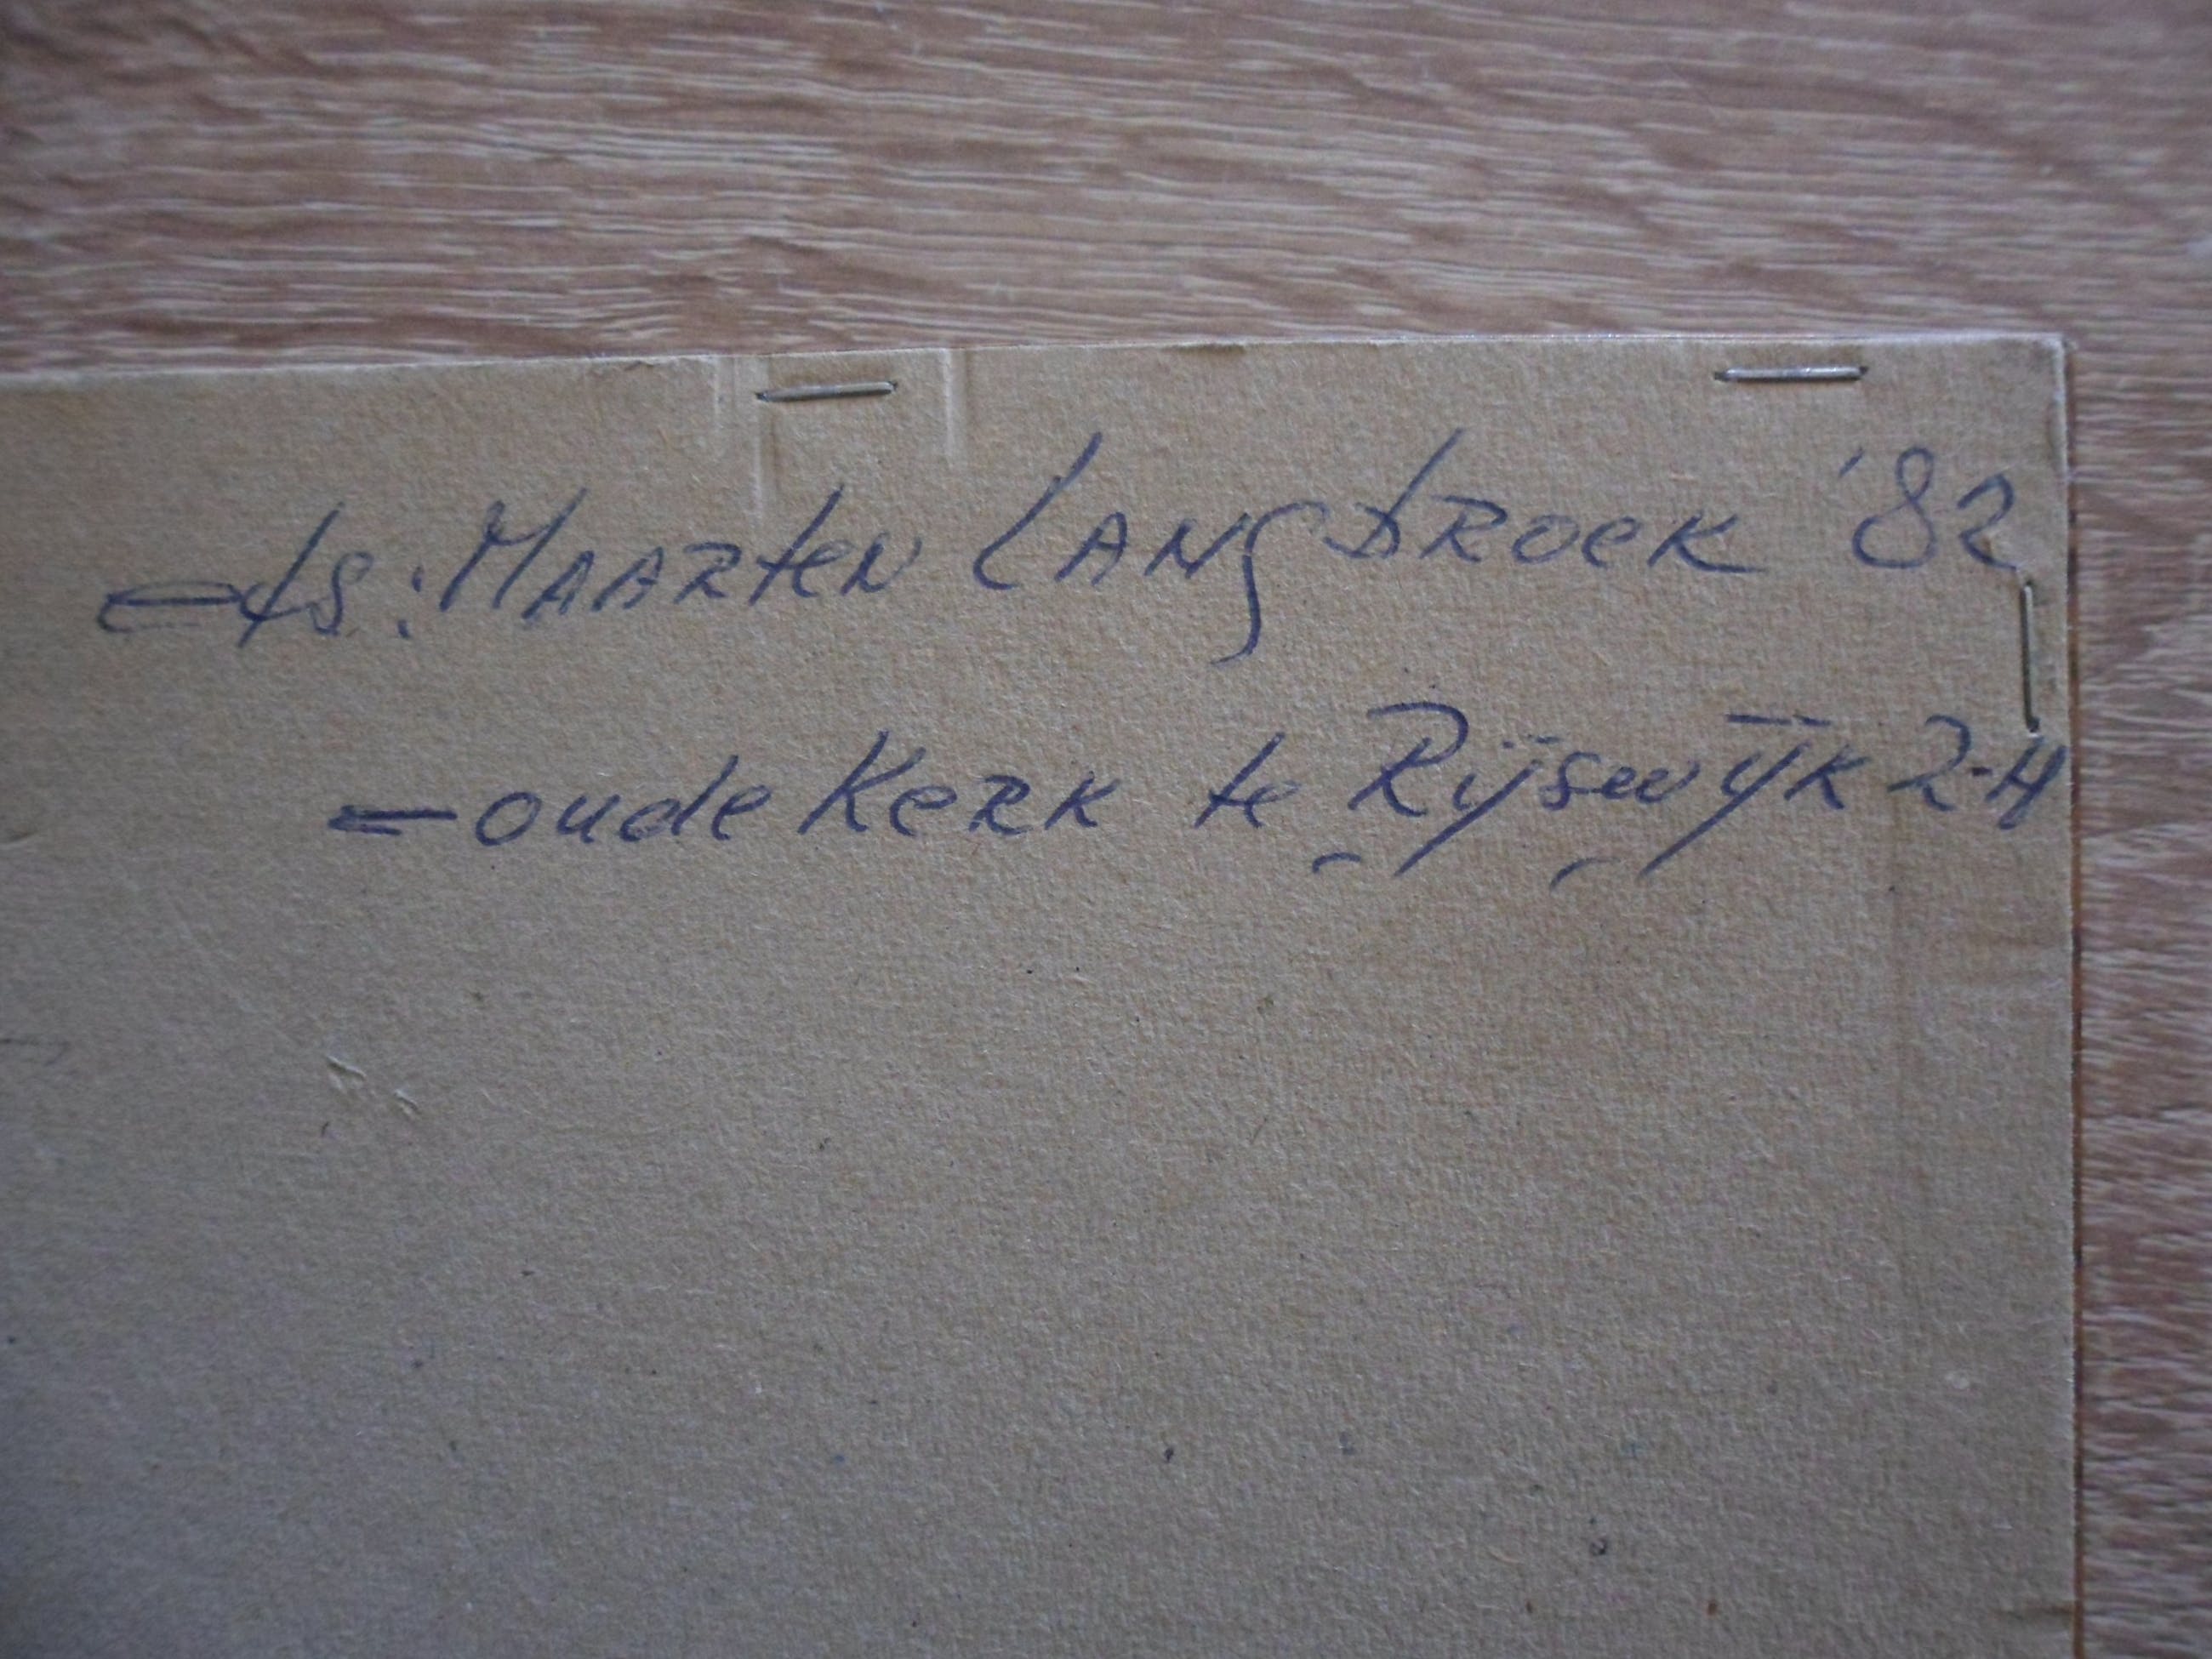 ets: MAARTEN LANGBROEK '82
- oude KERK te Rijswijk Z-H